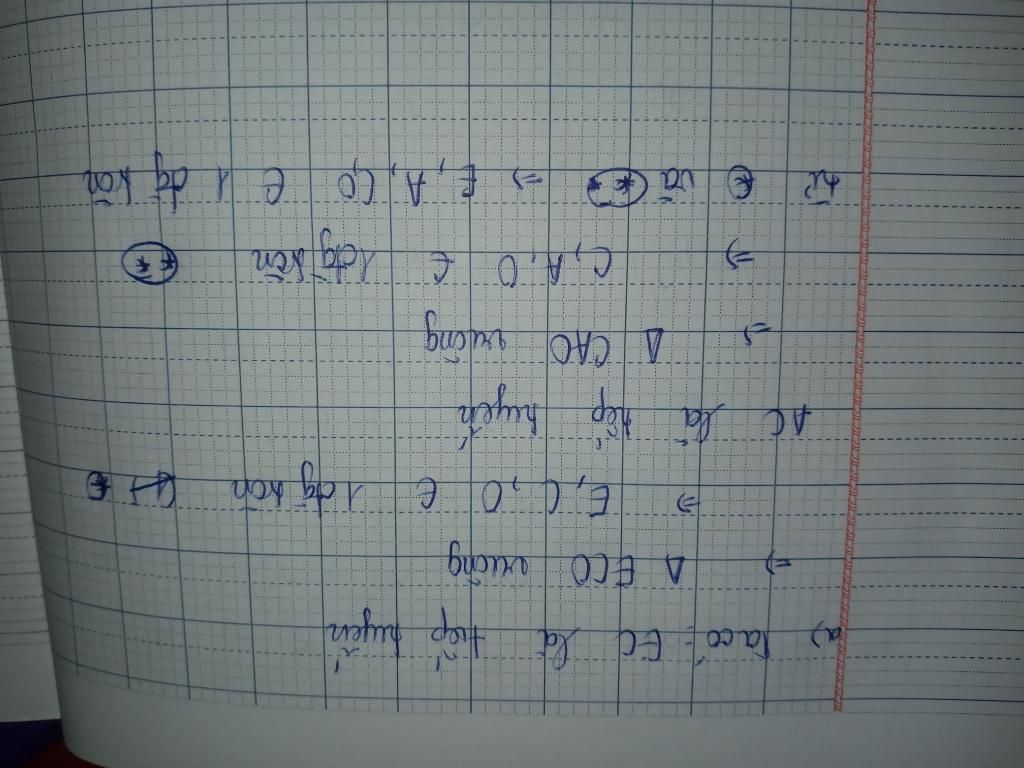 a) Ta có: EC là tiếp tuyến
=> Δ ECO vuông
=> E, C, O ∈ 1 đg tròn (*)
AC là tiếp tuyến
=> Δ CAO vuông
=> C, A, O ∈ 1 đg tròn (**)
từ (*) và (**) => E, A, C, O ∈ 1 đg tròn